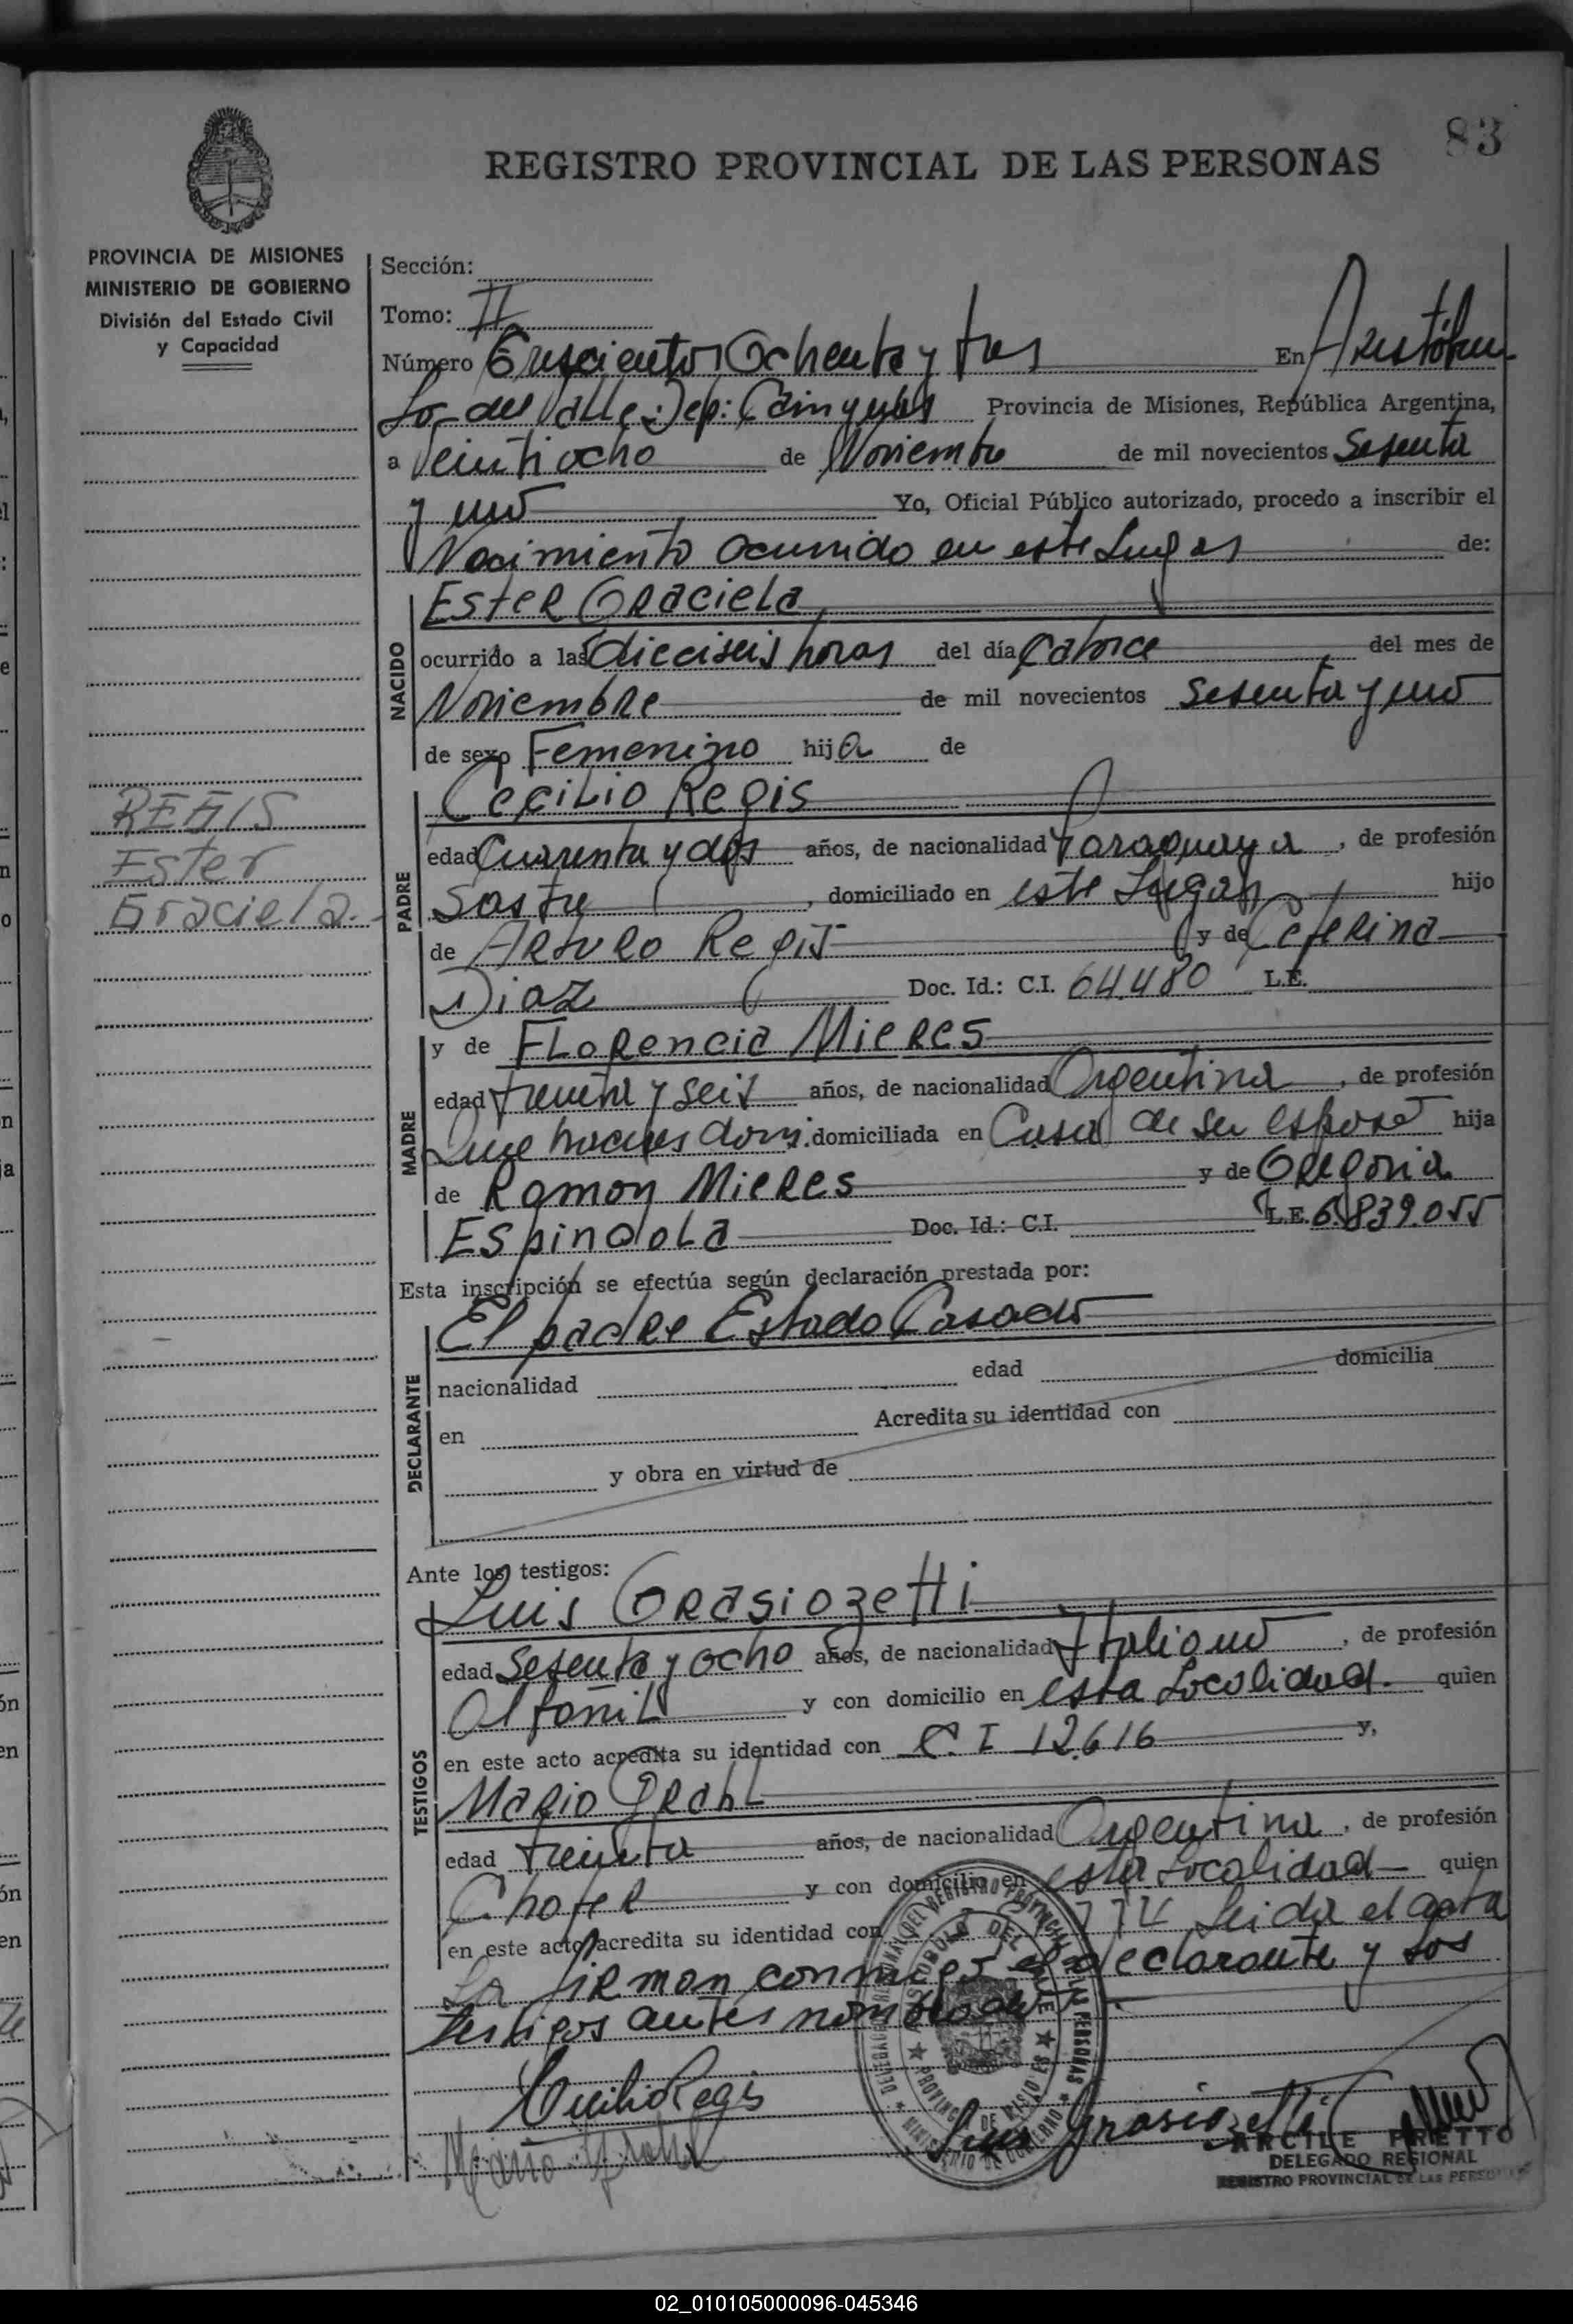 83
REGISTRO PROVINCIAL DE LAS PERSONAS
PROVINCIA DE MISIONES
MINISTERIO DE GOBIERNO
División del Estado Civil
y Capacidad
Sección:
Tomo: II
Número Trescientos Ochenta y tres En Aristóbu
lo del Valle Dep: Cainguas Provincia de Misiones, República Argentina,
a Veintiocho de Noviembre de mil novecientos Sesenta
y uno Yo, Oficial Público autorizado, procedo a inscribir el
Nacimiento ocurrido en este Lugar de:
NACIDO
Ester Graciela
ocurrido a las dieciseis horas del día catorce del mes de
Noviembre de mil novecientos sesenta y uno
de sexo Femenino hija de
REGIS
Ester
Graciela.
PADRE
Cecilio Regis
edad Cuarenta y dos años, de nacionalidad Paraguaya, de profesión
Sastre, domiciliado en este Lugar hijo
de Arturo Regis y de Ceferina
Diaz Doc. Id.: C.I. 64.480 L.E.
MADRE
y de Florencia Mieres
edad treinta y seis años, de nacionalidad Argentina, de profesión
Que haceres dom. domiciliada en Casa de su esposo hija
de Ramon Mieres y de Gregoria
Espindola Doc. Id.: C.I. L.E. 6.839.055
Esta inscripción se efectúa según declaración prestada por:
DECLARANTE
El padre Estado Casado
nacionalidad edad domicilia
en Acredita su identidad con
y obra en virtud de
Ante los testigos:
TESTIGOS
Luis Grasiozetti
edad Sesenta y ocho años, de nacionalidad Italiano, de profesión
Albañil y con domicilio en esta Localidad. quien
en este acto acredita su identidad con C. I 12.616 y,
Mario Grahl
edad treinta años, de nacionalidad Argentina, de profesión
Chofer y con domicilio en esta Localidad quien
en este acto acredita su identidad con 774 Leida el acta
La firman conmigo el declarante y los
testigos antes nombrados.
DELEGACION REGIONAL DEL REGISTRO PROVINCIAL DE LAS PERSONAS
MINISTERIO DE GOBIERNO
ARISTOBULO DEL VALLE
PROVINCIA DE MISIONES
Cecilio Regis
Luis Grasiozetti
Mario Grahl
ARCILE PRETTO
DELEGADO REGIONAL
REGISTRO PROVINCIAL DE LAS PERSONAS
02_010105000096-045346